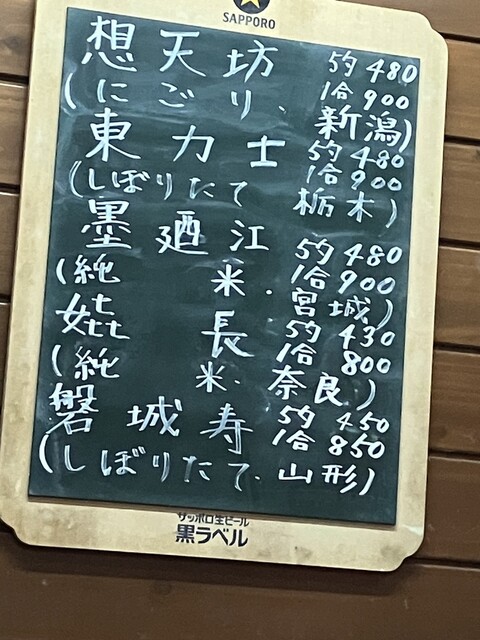 SAPPORO
想天坊 5勺 480
(にごり、 1合 900
新潟)
東力士 5勺 480
(しぼりたて 1合 900
栃木)
墨廼江 5勺 480
(純米. 1合 900
宮城)
長 5勺 430
(純米. 1合 800
奈良)
磐城寿 5勺 450
(しぼりたて. 1合 850
山形)
サッポロ生ビール
黒ラベル